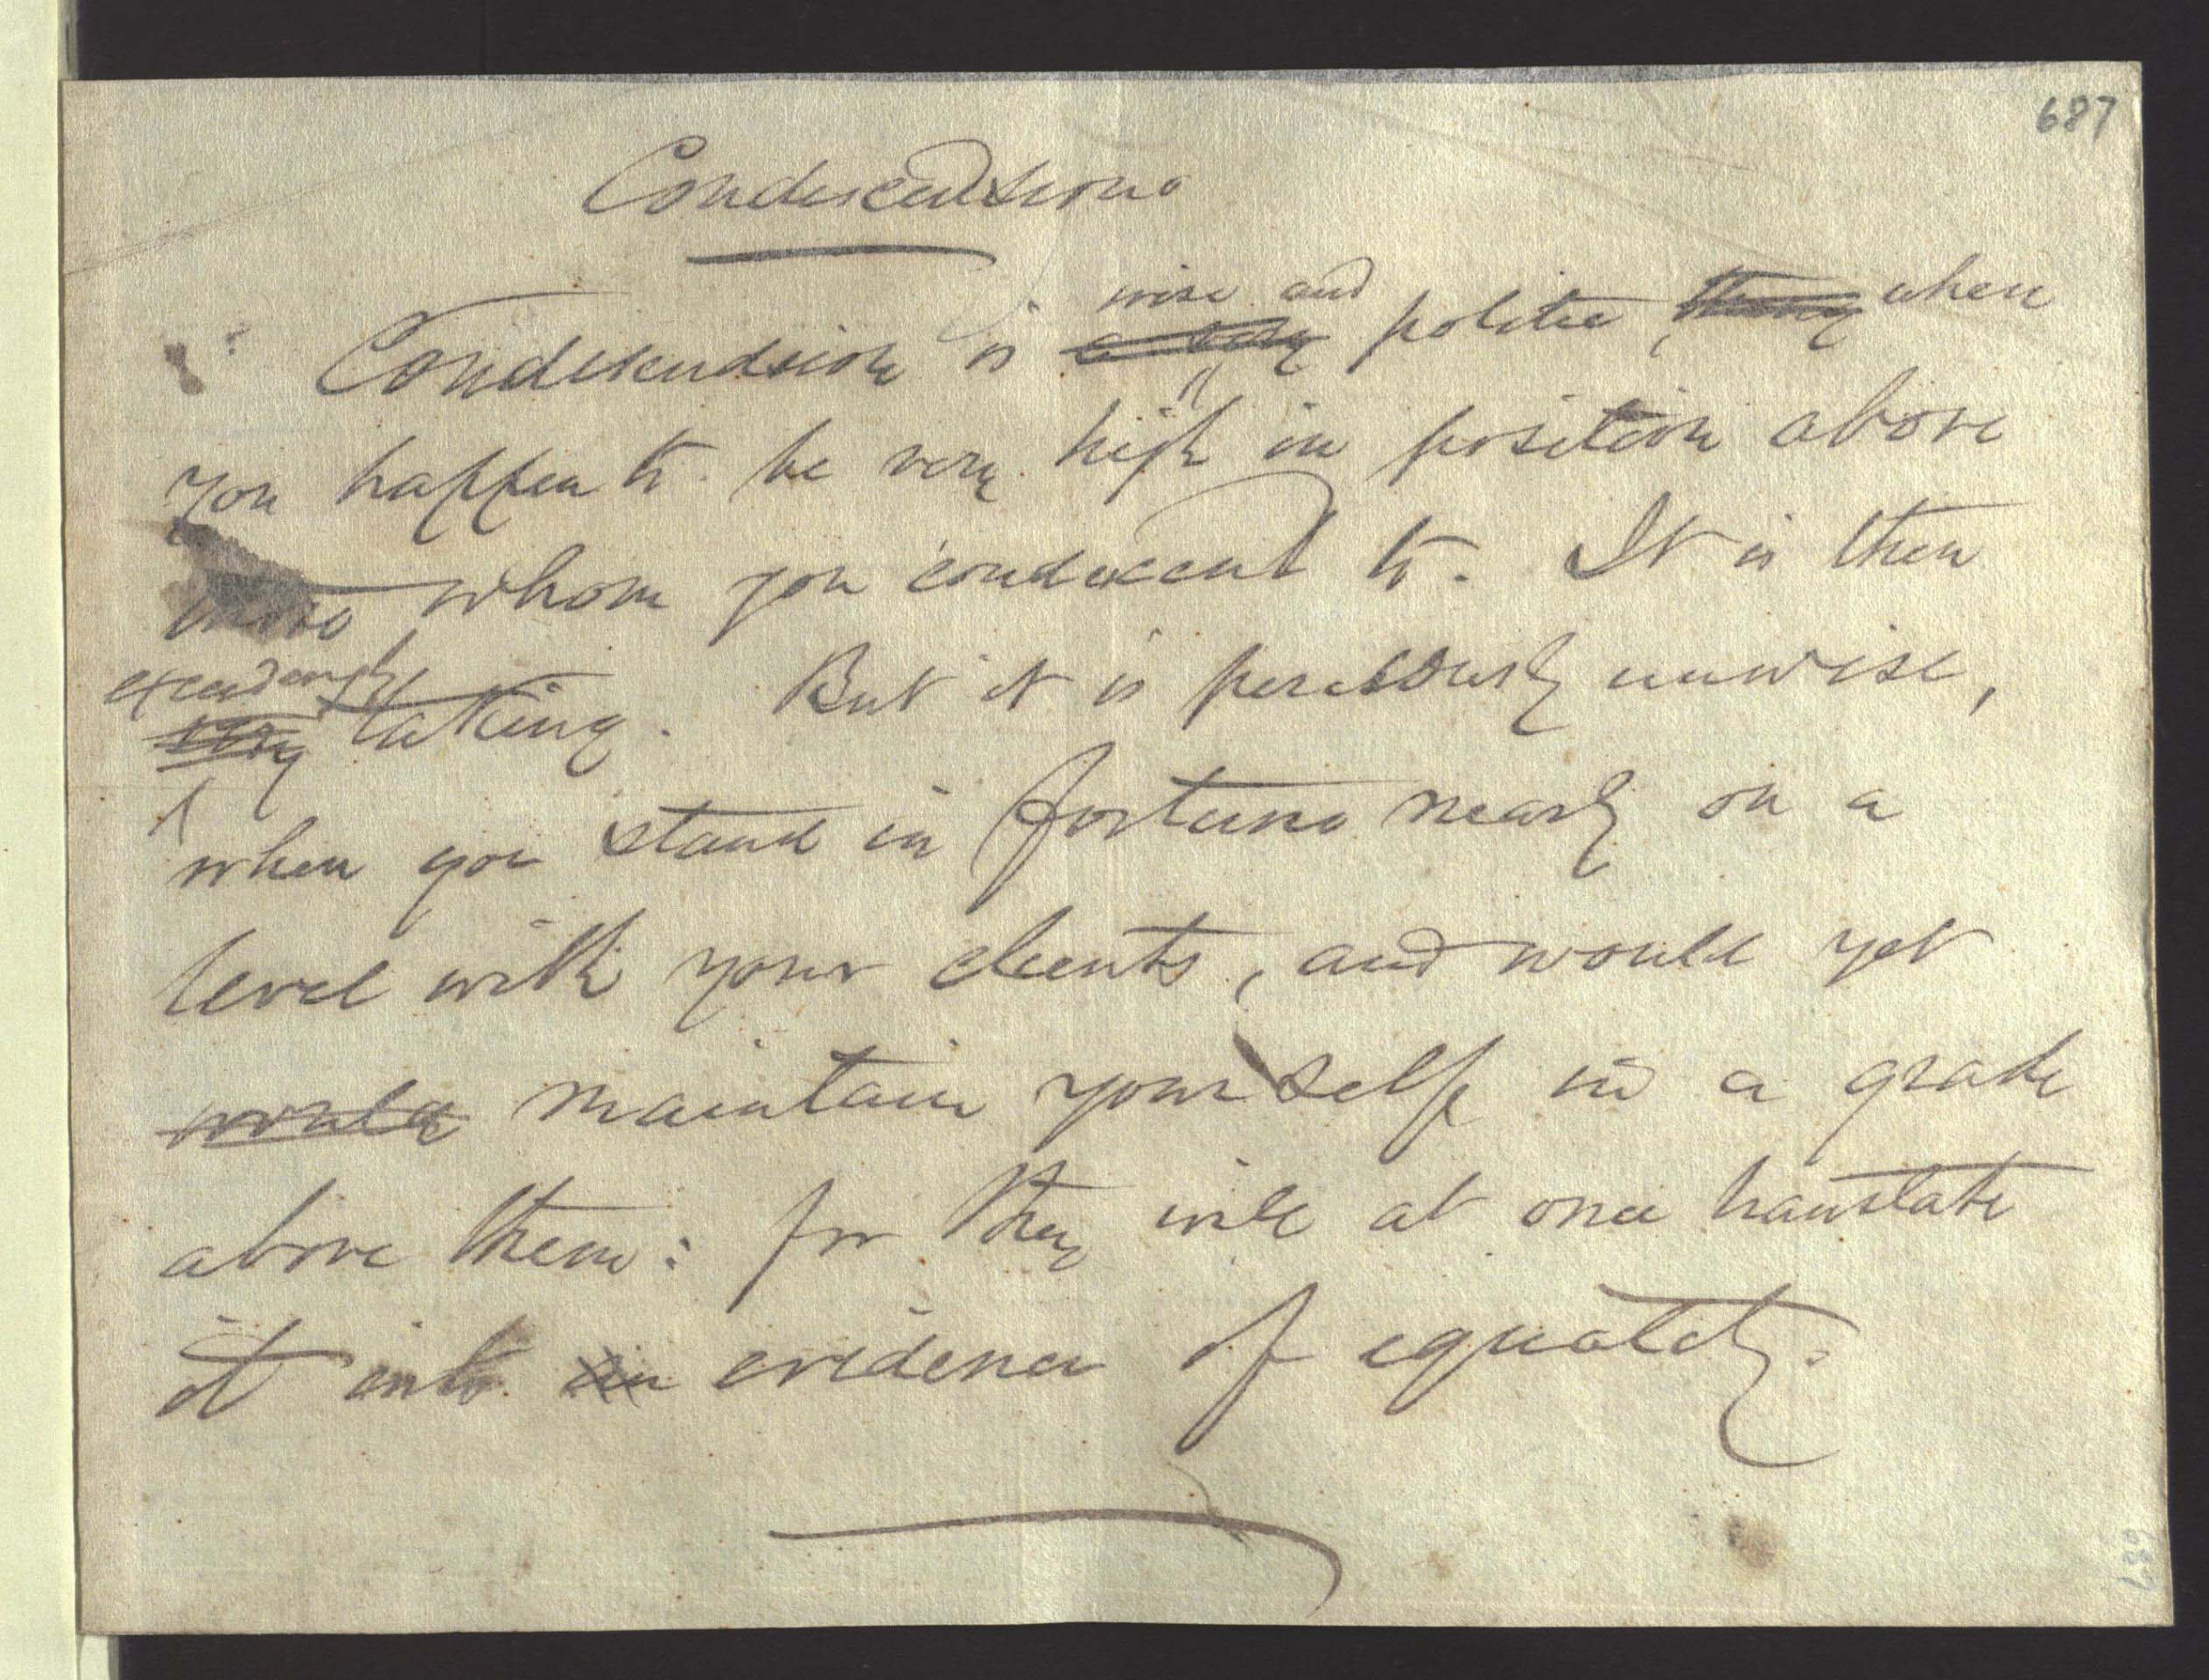 687
Condescension
Condescension is a very wise and polite, thing when
you happen to be very high in position above
those whom you condescend to. It is then
very exceedingly taking. But it is perilously unwise,
when you stand in fortune nearly on a
level with your clients, and would yet
would maintain yourself in a grade
above them: for they will at once translate
it into an evidence of equality.